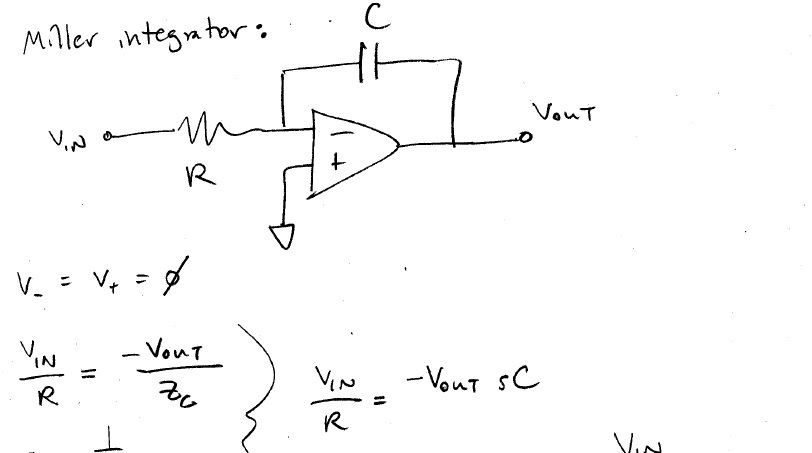 Miller integrator:
C
VIN
R
−
+
VOUT
V- = V+ = ∅
VIN/R = -VOUT/ZC
VIN/R = -VOUT sC
1
VIN